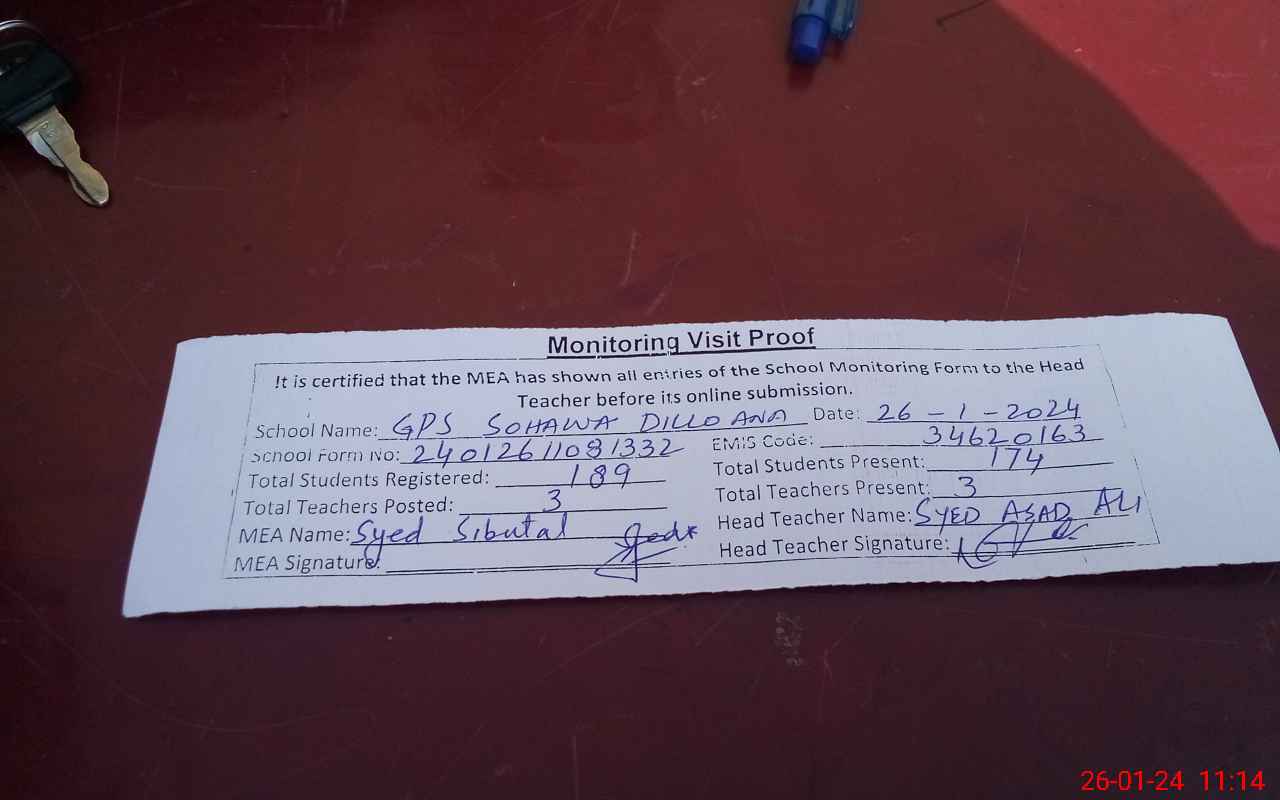 Monitoring Visit Proof
It is certified that the MEA has shown all entries of the School Monitoring Form to the Head
Teacher before its online submission.
School Name: GPS SOHAWA DILLOANA Date: 26-1-2024
School Form No: 24012611081332 EMIS Code: 34620163
Total Students Registered: 189 Total Students Present: 174
Total Teachers Posted: 3 Total Teachers Present: 3
MEA Name: Syed Sibutal Head Teacher Name: SYED ASAD ALI
MEA Signature: Head Teacher Signature:
26-01-24 11:14